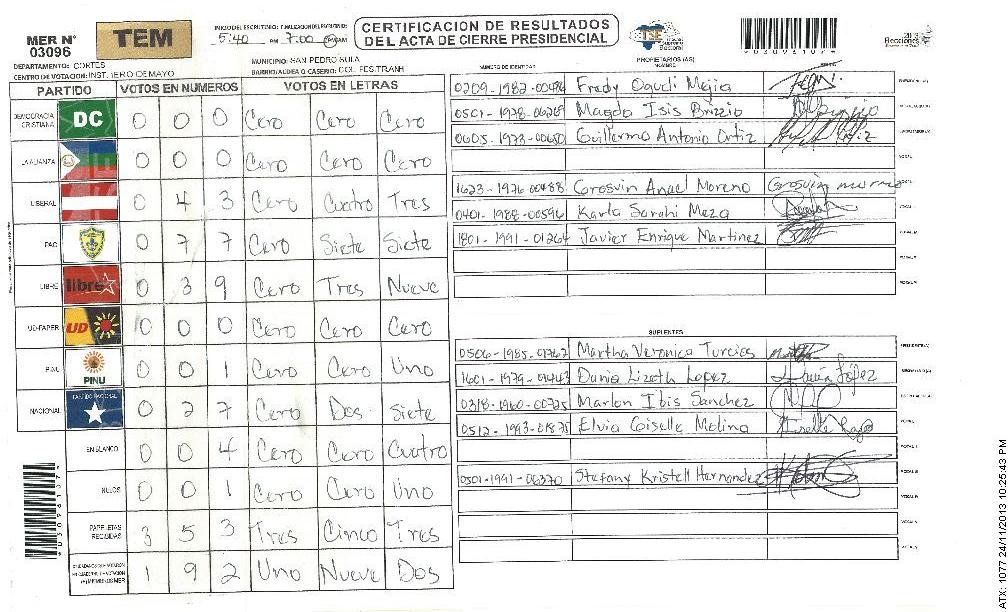 MER N° 03096
TEM
INICIO DEL ESCRUTINIO: FINALIZACION DEL ESCRUTINIO:
5:40 PM 7:00
CERTIFICACION DE RESULTADOS
DEL ACTA DE CIERRE PRESIDENCIAL
TSE
Tribunal Supremo Electoral
9030961074
DEPARTAMENTO: CORTES
MUNICIPIO: SAN PEDRO SULA
CENTRO DE VOTACION: INST. 1ERO DE MAYO
BARRIO/ALDEA O CASERIO: COL. FES.TRANH
PARTIDO VOTOS EN NUMEROS VOTOS EN LETRAS
DEMOCRACIA CRISTIANA DC 0 0 0 Cero Cero Cero
LA ALIANZA 0 0 0 Cero Cero Cero
LIBERAL 0 4 3 Cero Cuatro Tres
PAC 0 7 7 Cero Siete Siete
LIBRE libre 0 3 9 Cero Tres Nueve
UD-FAPER UD 0 0 0 Cero Cero Cero
PINU PINU 0 0 1 Cero Cero Uno
NACIONAL PARTIDO NACIONAL 0 2 7 Cero Dos Siete
EN BLANCO 0 0 4 Cero Cero Cuatro
NULOS 0 0 1 Cero Cero Uno
PAPELETAS RECIBIDAS 3 5 3 Tres Cinco Tres
1 9 2 Uno Nueve Dos
PROPIETARIOS (AS)
NUMERO DE IDENTIDAD NOMBRE FIRMA
0209-1982-00486 Frady Oqueli Mejia
0501-1978-06269 Magda Isis Brizzio
0605-1973-00680 Guillermo Antonio Ortiz
VOCAL
1623-1976-00488 Grosvin Anael Moreno Grosvin
0401-1988-00596 Karla Sarahi Meza
1801-1991-01264 Javier Enrique Martinez
SUPLENTES
0506-1985-01762 Martha Veronica Turcios
1601-1979-01443 Dania Lizeth Lopez Dania López
0318-1960-00725 Marlon Ibis Sanchez
0512-1993-01875 Elvia Giselle Molina
0501-1991-06370 Stefany Kristell Hernandez
9030961074
ATX: 1077 24/11/2013 10:25:43 PM